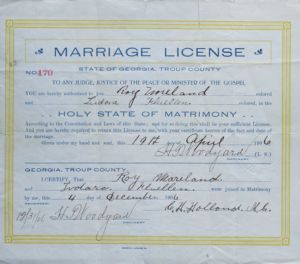 MARRIAGE LICENSE
STATE OF GEORGIA, TROUP COUNTY
No 170
TO ANY JUDGE, JUSTICE OF THE PEACE OR MINISTER OF THE GOSPEL
YOU are hereby authorized to join Roy Moreland colored
and colored, in the
HOLY STATE OF MATRIMONY
According to the Constitution and Laws of this State; and for so doing this shall be your sufficient License.
And you are hereby required to return this License to me, with your certificate hereon of the fact and date of
the marriage.
Given under my hand and seal, this 19th April 1906
H. T. Woodyard (L. S.)
GEORGIA, TROUP COUNTY.
I CERTIFY, That Roy Moreland
and Fluellen were joined in Matrimony
by me, this 4 day of December 1906
H T Woodyard
Holland M.G.